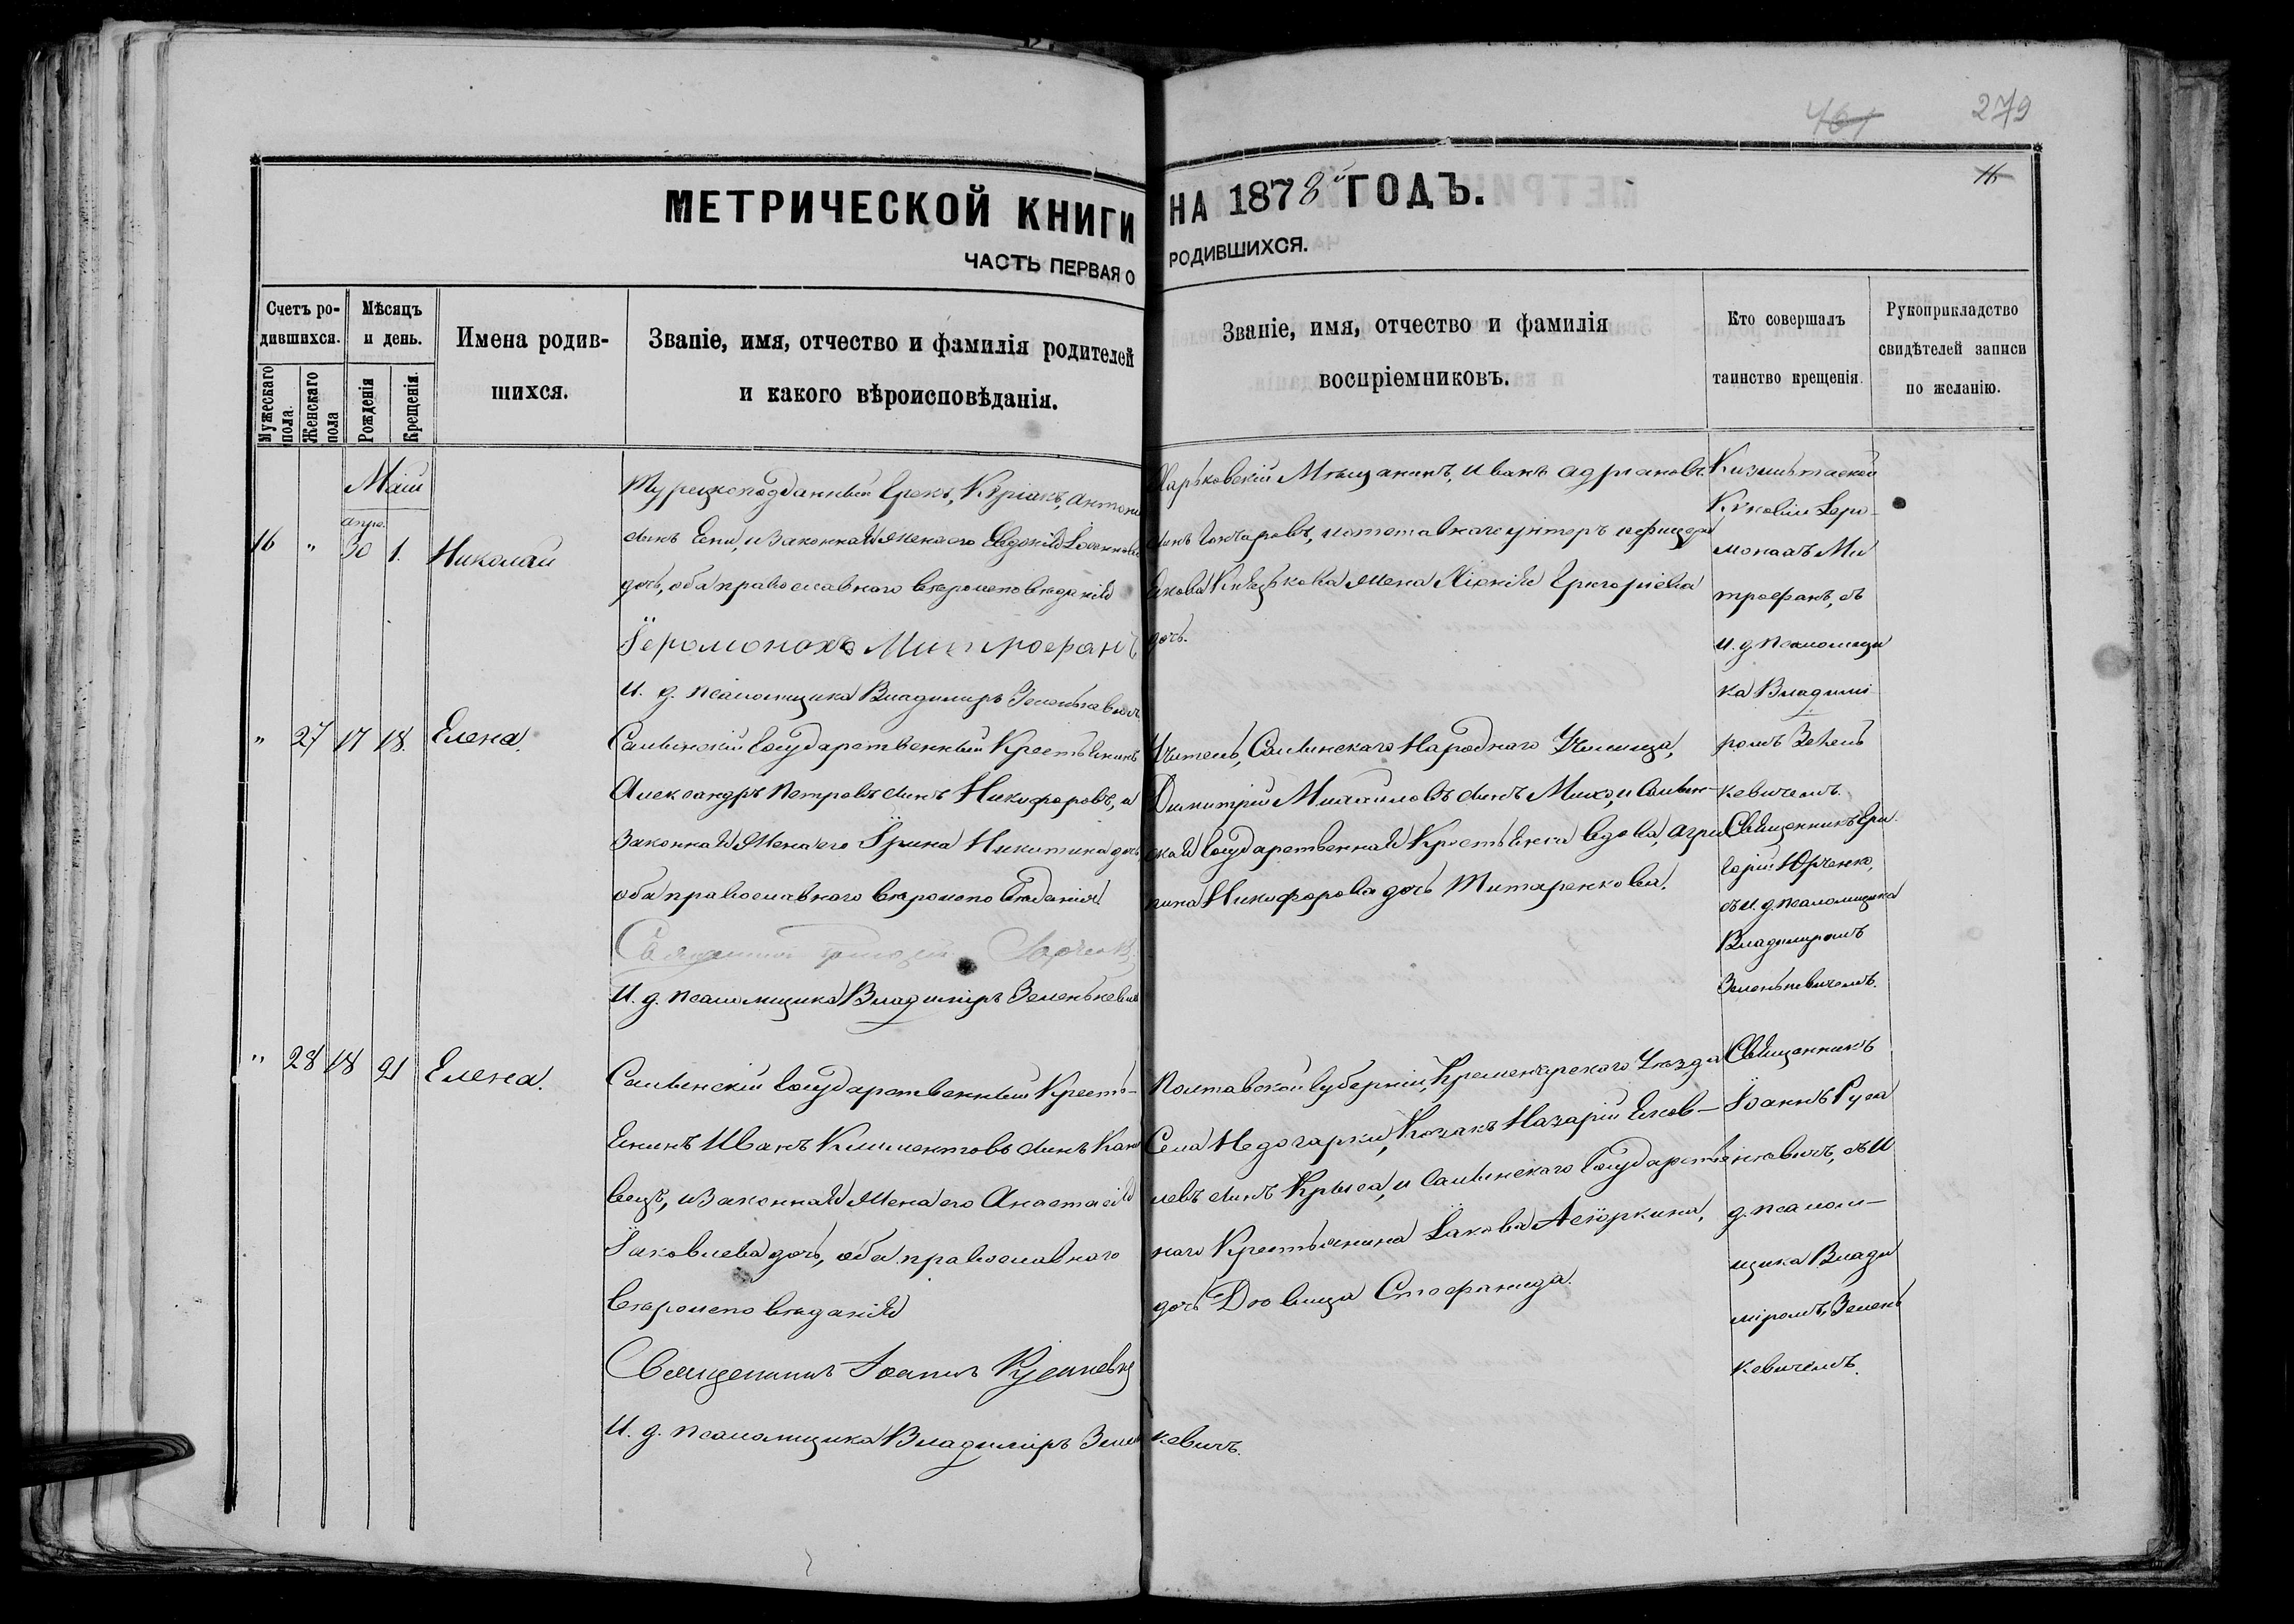 461
279
16
МЕТРИЧЕСКОЙ КНИГИ НА 1878й ГОДЪ.
ЧАСТЬ ПЕРВАЯ О РОДИВШИХСЯ.
Счетъ ро-
дившихся.
Мужескаго
пола.
Женскаго
пола
Мѣсяцъ
и день.
Рожденія
Крещенія.
Имена родив-
шихся.
Званіе, имя, отчество и фамилія родителей
и какого вѣроисповѣданія.
Званіе, имя, отчество и фамилія
воспріемниковъ.
Кто совершалъ
таинство крещенія.
Рукоприкладство
свидѣтелей записи
по желанію.
Май
апре.
16 " 30 1. Николай
Турецкоподданный Грекъ, Киріакъ Антоно
сынъ и законная жена его Евдокія
дочь, оба православнаго вѣроисповѣданія
Іеромонахъ Митрофанъ
И. д. псаломщика Владиміръ Зеленькевичъ
Харьковскій Мѣщанинъ, Иванъ Адріановъ
сынъ Гончаровъ, и отставнаго унтеръ офицера
жена Григоріева
дочь.
Іеро-
монахъ Ми
трофанъ, съ
и. д. псаломщи
ка Владимі
ромъ Зелень
кевичемъ.
" 27 17 18. Елена.
Государственный Крестьянинъ
Александръ Петровъ сынъ Никифоровъ, и
законная жена его Ирина Никитина дочь
оба православнаго вѣроисповѣданія.
Священникъ Григорій Юрченко
И. д. псаломщика Владиміръ Зеленькевичъ
Учитель, Народнаго Училища,
Димитрій Михаиловъ сынъ Михо, и
ская Государственная Крестьянка вдова, Агри
пина Никифорова дочь Титаренкова.
Священникъ Гри
горій Юрченко,
съ и. д. псаломщика
Владимиромъ
Зеленькевичемъ.
" 28 18 21 Елена.
Государственный Кресть-
янинъ Иванъ Климентовъ сынъ
вецъ, и законная жена его Анастасія
Іаковлева дочь, оба православнаго
вѣроисповѣданія
Священникъ Іоаннъ
И. д. псаломщика Владиміръ Зеленькевичъ.
Полтавской губерніи, Кременчугскаго Уѣзда
Села Недогарки, Козакъ Назарій
левъ сынъ Крыса, и Государствен
наго Крестьянина Іакова
дочь Дѣвица Стефанида.
Священникъ
Іоаннъ Руси
новичъ, съ и
д. псалом-
щика Влади
міромъ, Зелень
кевичемъ.